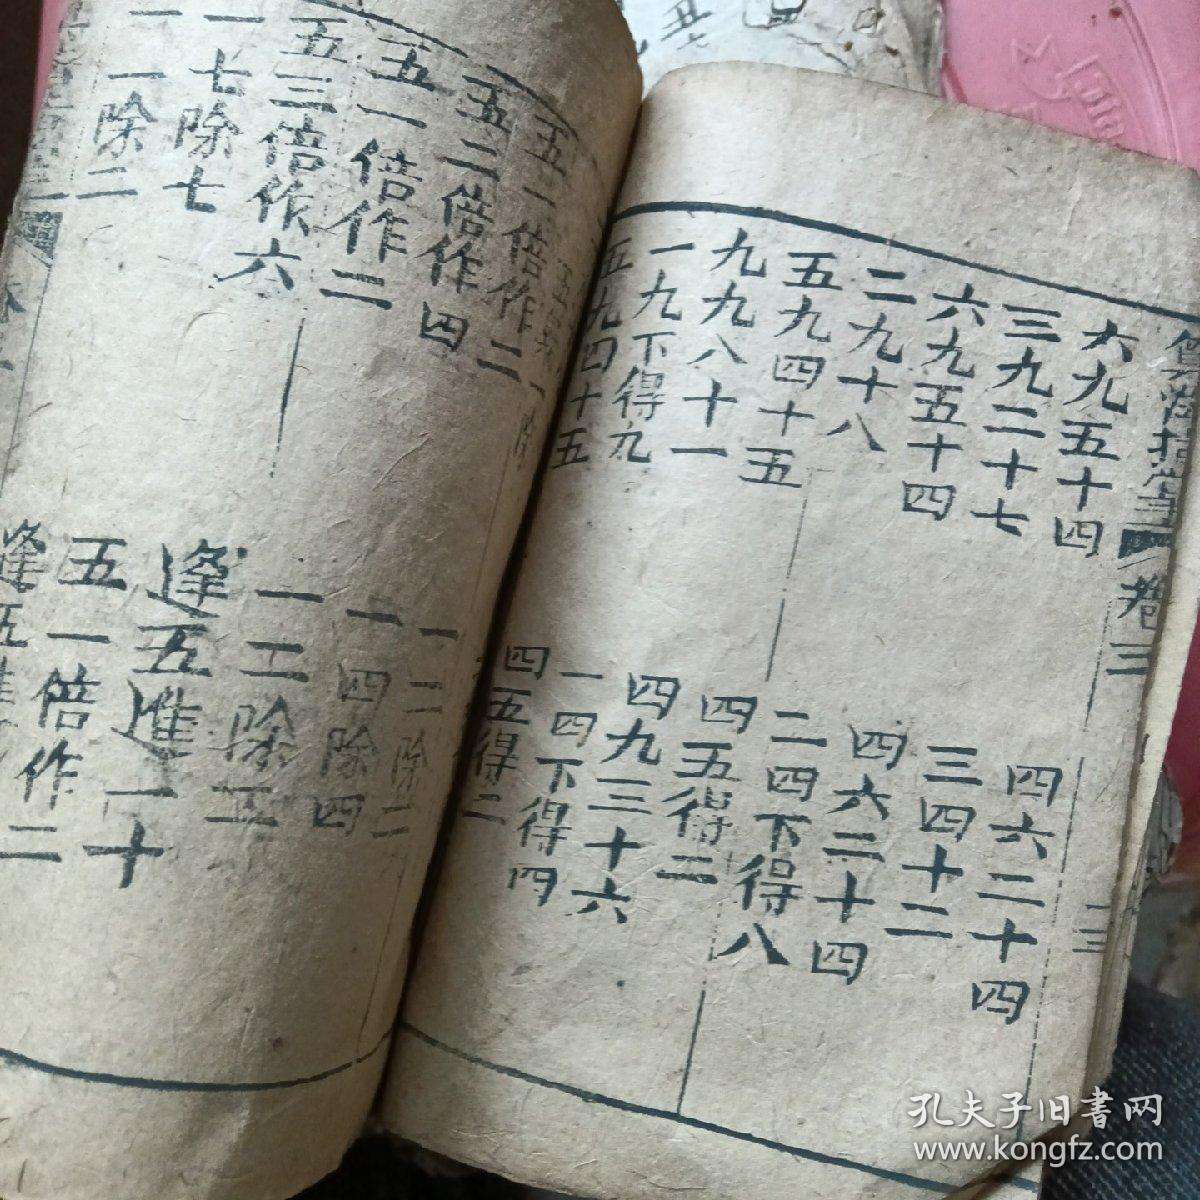 卷三
六九五十四
三九二十七
六九五十四
二九十八
五九四十五
九九八十一
一九下得九
五九四十五
四六二十四
三四十二
四六二十四
二四下得八
四五得二
四九三十六
一四下得四
四五得二
五一倍作二
五二倍作四
五一倍作二
五三倍作六
一七除七
一一除二
一二除二
一四除四
一二除
逢五進一十
五一倍作二
逢五進
孔夫子旧書网
www.kongfz.com